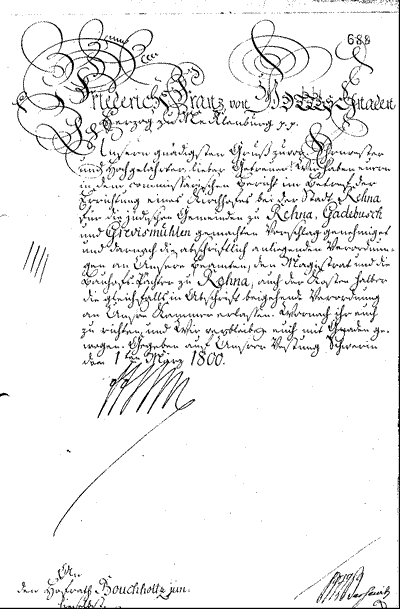 688
Friederich Franz von Gottes Gnaden
Herzog zu Mecklenburg p.p.
Unsern gnädigsten Gruß zuvor. Ehrenvester
und Hochgelahrter, lieber Getreuer! Wir haben euren
in dem commissarischen Bericht im Betref der
Errichtung eines Kirchhofes bei der Stadt Rehna
für die jüdischen Gemeinden zu Rehna, Gadebusch
und Grevismühlen gemachten Vorschlag genehmiget
und darnach die abschriftlich anliegenden Verordnun-
gen an Unsere Beamten, den Magistrat und die
zu Rehna, auch der Kosten halber
die gleichfalls in Abschrift beigehende Verordnung
an Unsre Kammer erlassen. Wornach ihr euch
zu richten, und Wir verbleiben euch mit Gnaden ge-
wogen. Gegeben auf Unsrer Vestung Schwerin
den 1ten März 1800.
An
den Hofrath Bouchholtz jun.
hieselbst